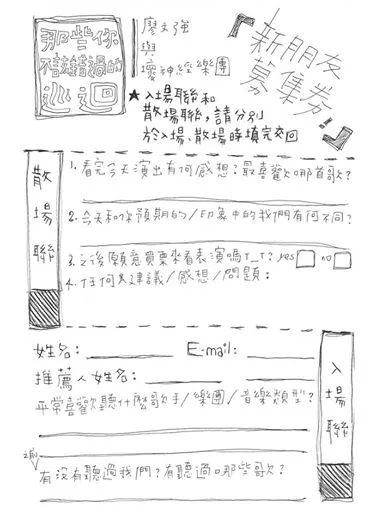 那些你
不該錯過的
巡迴
廖文強
與
壞神經樂團
『新朋友
募集券』
★入場聯和
散場聯,請分別
於入場、散場時填完交回
散場聯
1. 看完今天演出有何感想?最喜歡哪首歌?
2. 今天和你預期的/印象中的我們有何不同?
3. 之後願意買票來看表演嗎T_T? yes no
4. 任何建議/感想/問題:
姓名: E-mail:
推薦人姓名:
平常喜歡聽什麼歌手/樂團/音樂類型?
之前
有沒有聽過我們?有聽過哪些歌?
入場聯